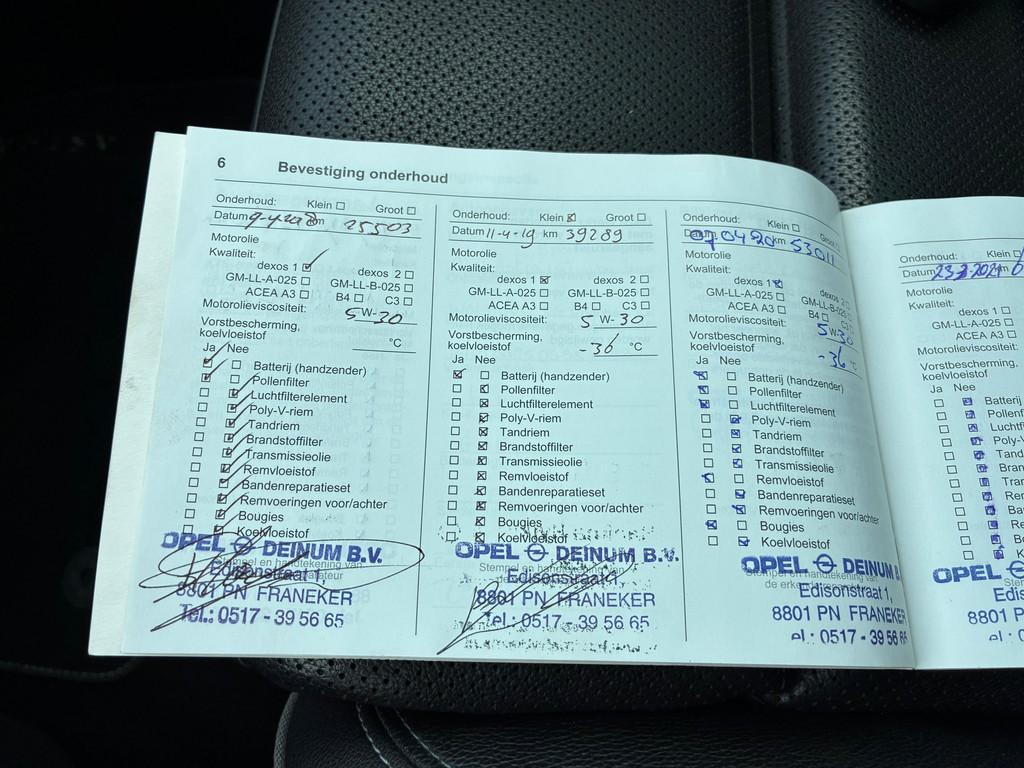 6 Bevestiging onderhoud
Onderhoud: Klein ☐ Groot ☐
Datum 9-4-2018 km 25503
Motorolie
Kwaliteit:
dexos 1 ☑ dexos 2 ☐
GM-LL-A-025 ☐ GM-LL-B-025 ☐
ACEA A3 ☐ B4 ☐ C3 ☐
Motorolieviscositeit: 5 W-30
Vorstbescherming,
koelvloeistof °C
Ja Nee
Batterij (handzender)
Pollenfilter
Luchtfilterelement
Poly-V-riem
Tandriem
Brandstoffilter
Transmissieolie
Remvloeistof
Bandenreparatieset
Remvoeringen voor/achter
Bougies
Koelvloeistof
OPEL DEINUM B.V.
Stempel en handtekening van
Edisonstraat 1,
8801 PN FRANEKER
Tel.: 0517 - 39 56 65
Onderhoud: Klein ☒ Groot ☐
Datum 11-4-19 km 39289
Motorolie
Kwaliteit:
dexos 1 ☒ dexos 2 ☐
GM-LL-A-025 ☐ GM-LL-B-025 ☐
ACEA A3 ☐ B4 ☐ C3 ☐
Motorolieviscositeit: 5 W-30
Vorstbescherming,
koelvloeistof -36 °C
Ja Nee
Batterij (handzender)
Pollenfilter
Luchtfilterelement
Poly-V-riem
Tandriem
Brandstoffilter
Transmissieolie
Remvloeistof
Bandenreparatieset
Remvoeringen voor/achter
Bougies
Koelvloeistof
OPEL DEINUM B.V.
Stempel en handtekening van
Edisonstraat 1,
8801 PN FRANEKER
Tel.: 0517 - 39 56 65
Onderhoud: Klein ☐ Groot
Datum 07 04 20 km 53011
Motorolie
Kwaliteit:
dexos 1 ☒ dexos 2 ☐
GM-LL-A-025 ☐ GM-LL-B-025
ACEA A3 ☐ B4 ☐ C3
Motorolieviscositeit: 5 W-30
Vorstbescherming,
koelvloeistof -36 °C
Ja Nee
Batterij (handzender)
Pollenfilter
Luchtfilterelement
Poly-V-riem
Tandriem
Brandstoffilter
Transmissieolie
Remvloeistof
Bandenreparatieset
Remvoeringen voor/achter
Bougies
Koelvloeistof
OPEL DEINUM B
Stempel en handtekening van
de erkende
Edisonstraat 1,
8801 PN FRANEKER
el.: 0517 - 39 56 6
Onderhoud: Klein
Datum 23 2021 km
Motorolie
Kwaliteit:
dexos 1 ☐
GM-LL-A-025 ☐
ACEA A3 ☐
Motorolieviscositeit:
Vorstbescherming,
koelvloeistof
Ja Nee
Batterij
Pollenf
Luchtf
Poly-V
Tand
Bran
Tran
Rem
Ba
Re
Bo
K
OPEL
Edis
8801 P
el.: 0